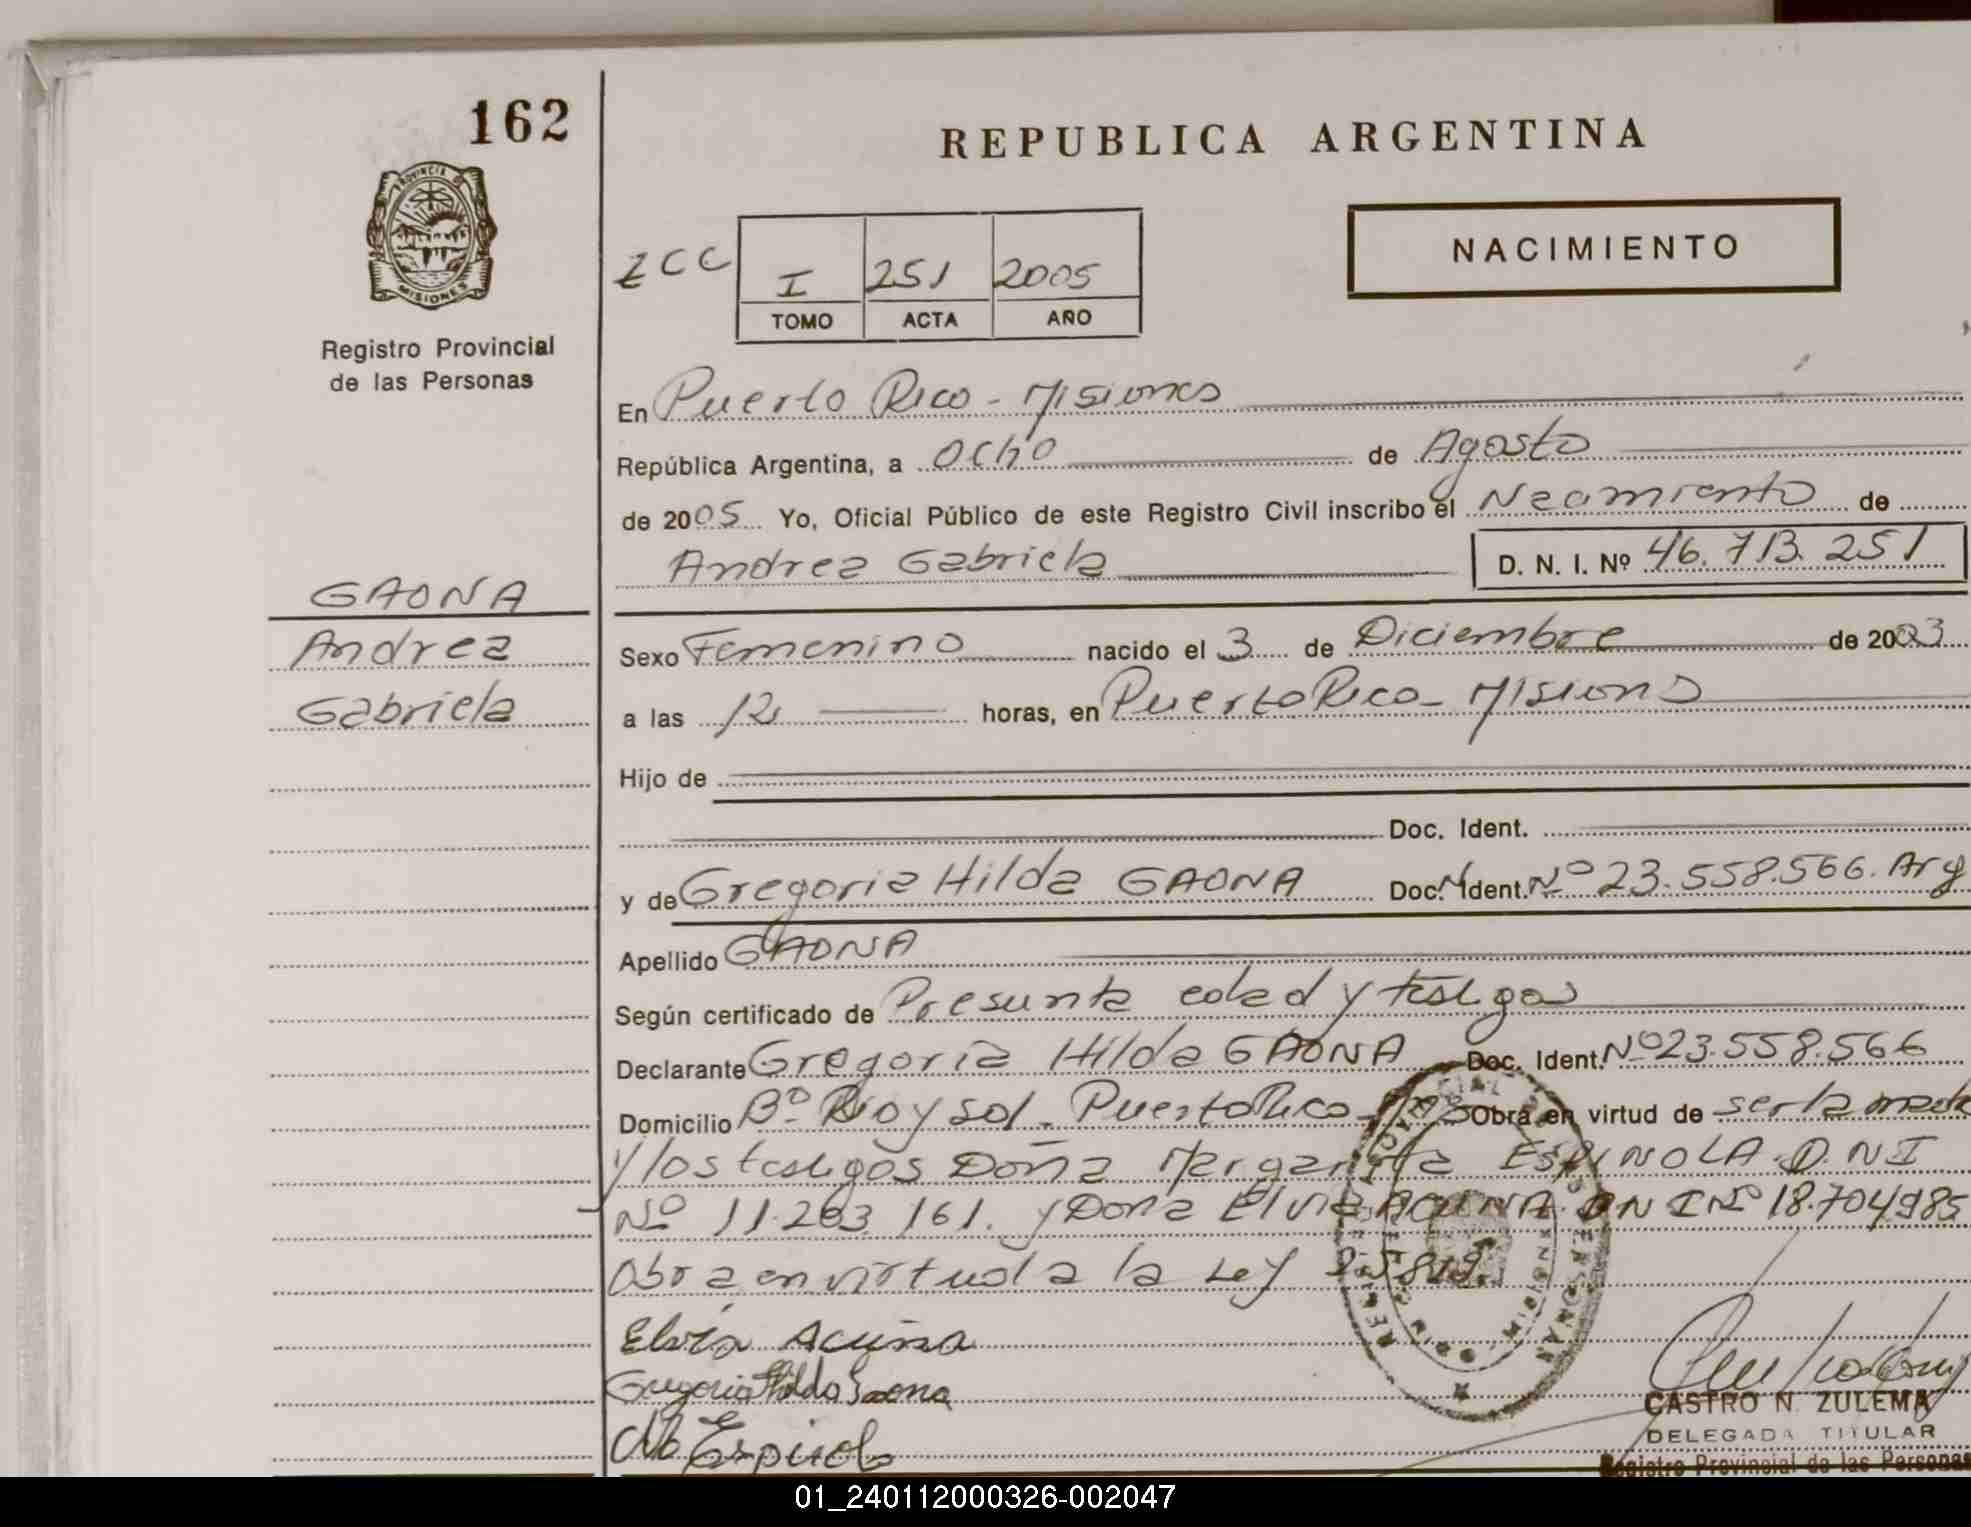 162
REPUBLICA ARGENTINA
PROVINCIA DE
MISIONES
Registro Provincial
de las Personas
NACIMIENTO
I 251 2005
TOMO ACTA AÑO
En Puerto Rico - Misiones
República Argentina, a Ocho de Agosto
de 2005 Yo, Oficial Público de este Registro Civil inscribo el Nacimiento de
Andrea Gabriela D. N. I. Nº 46.713.251
GAONA
Andrea
Gabriela
Sexo Femenino nacido el 3 de Diciembre de 2003
a las 12 horas, en Puerto Rico - Misiones
Hijo de
Doc. Ident.
y de Gregoria Hilda GAONA Doc. Ident. Nº 23.558.566. Arg
Apellido GAONA
Según certificado de Presunta edad y testigos
Declarante Gregoria Hilda GAONA Doc. Ident. Nº 23.558.566
Domicilio Bº Rio y Sol - Puerto Rico - Obra en virtud de ser la madre
y los testigos Doña Margarita ESPINOLA. D.N.I
Nº 11.203.161. y Doña Elvia ACUÑA DNI Nº 18.704985
Obra en virtud a la Ley
Elvia Acuña
Gregoria Hilda Gaona
M. Espinola
CASTRO N. ZULEMA
DELEGADA TITULAR
Registro Provincial de las Personas
01_240112000326-002047